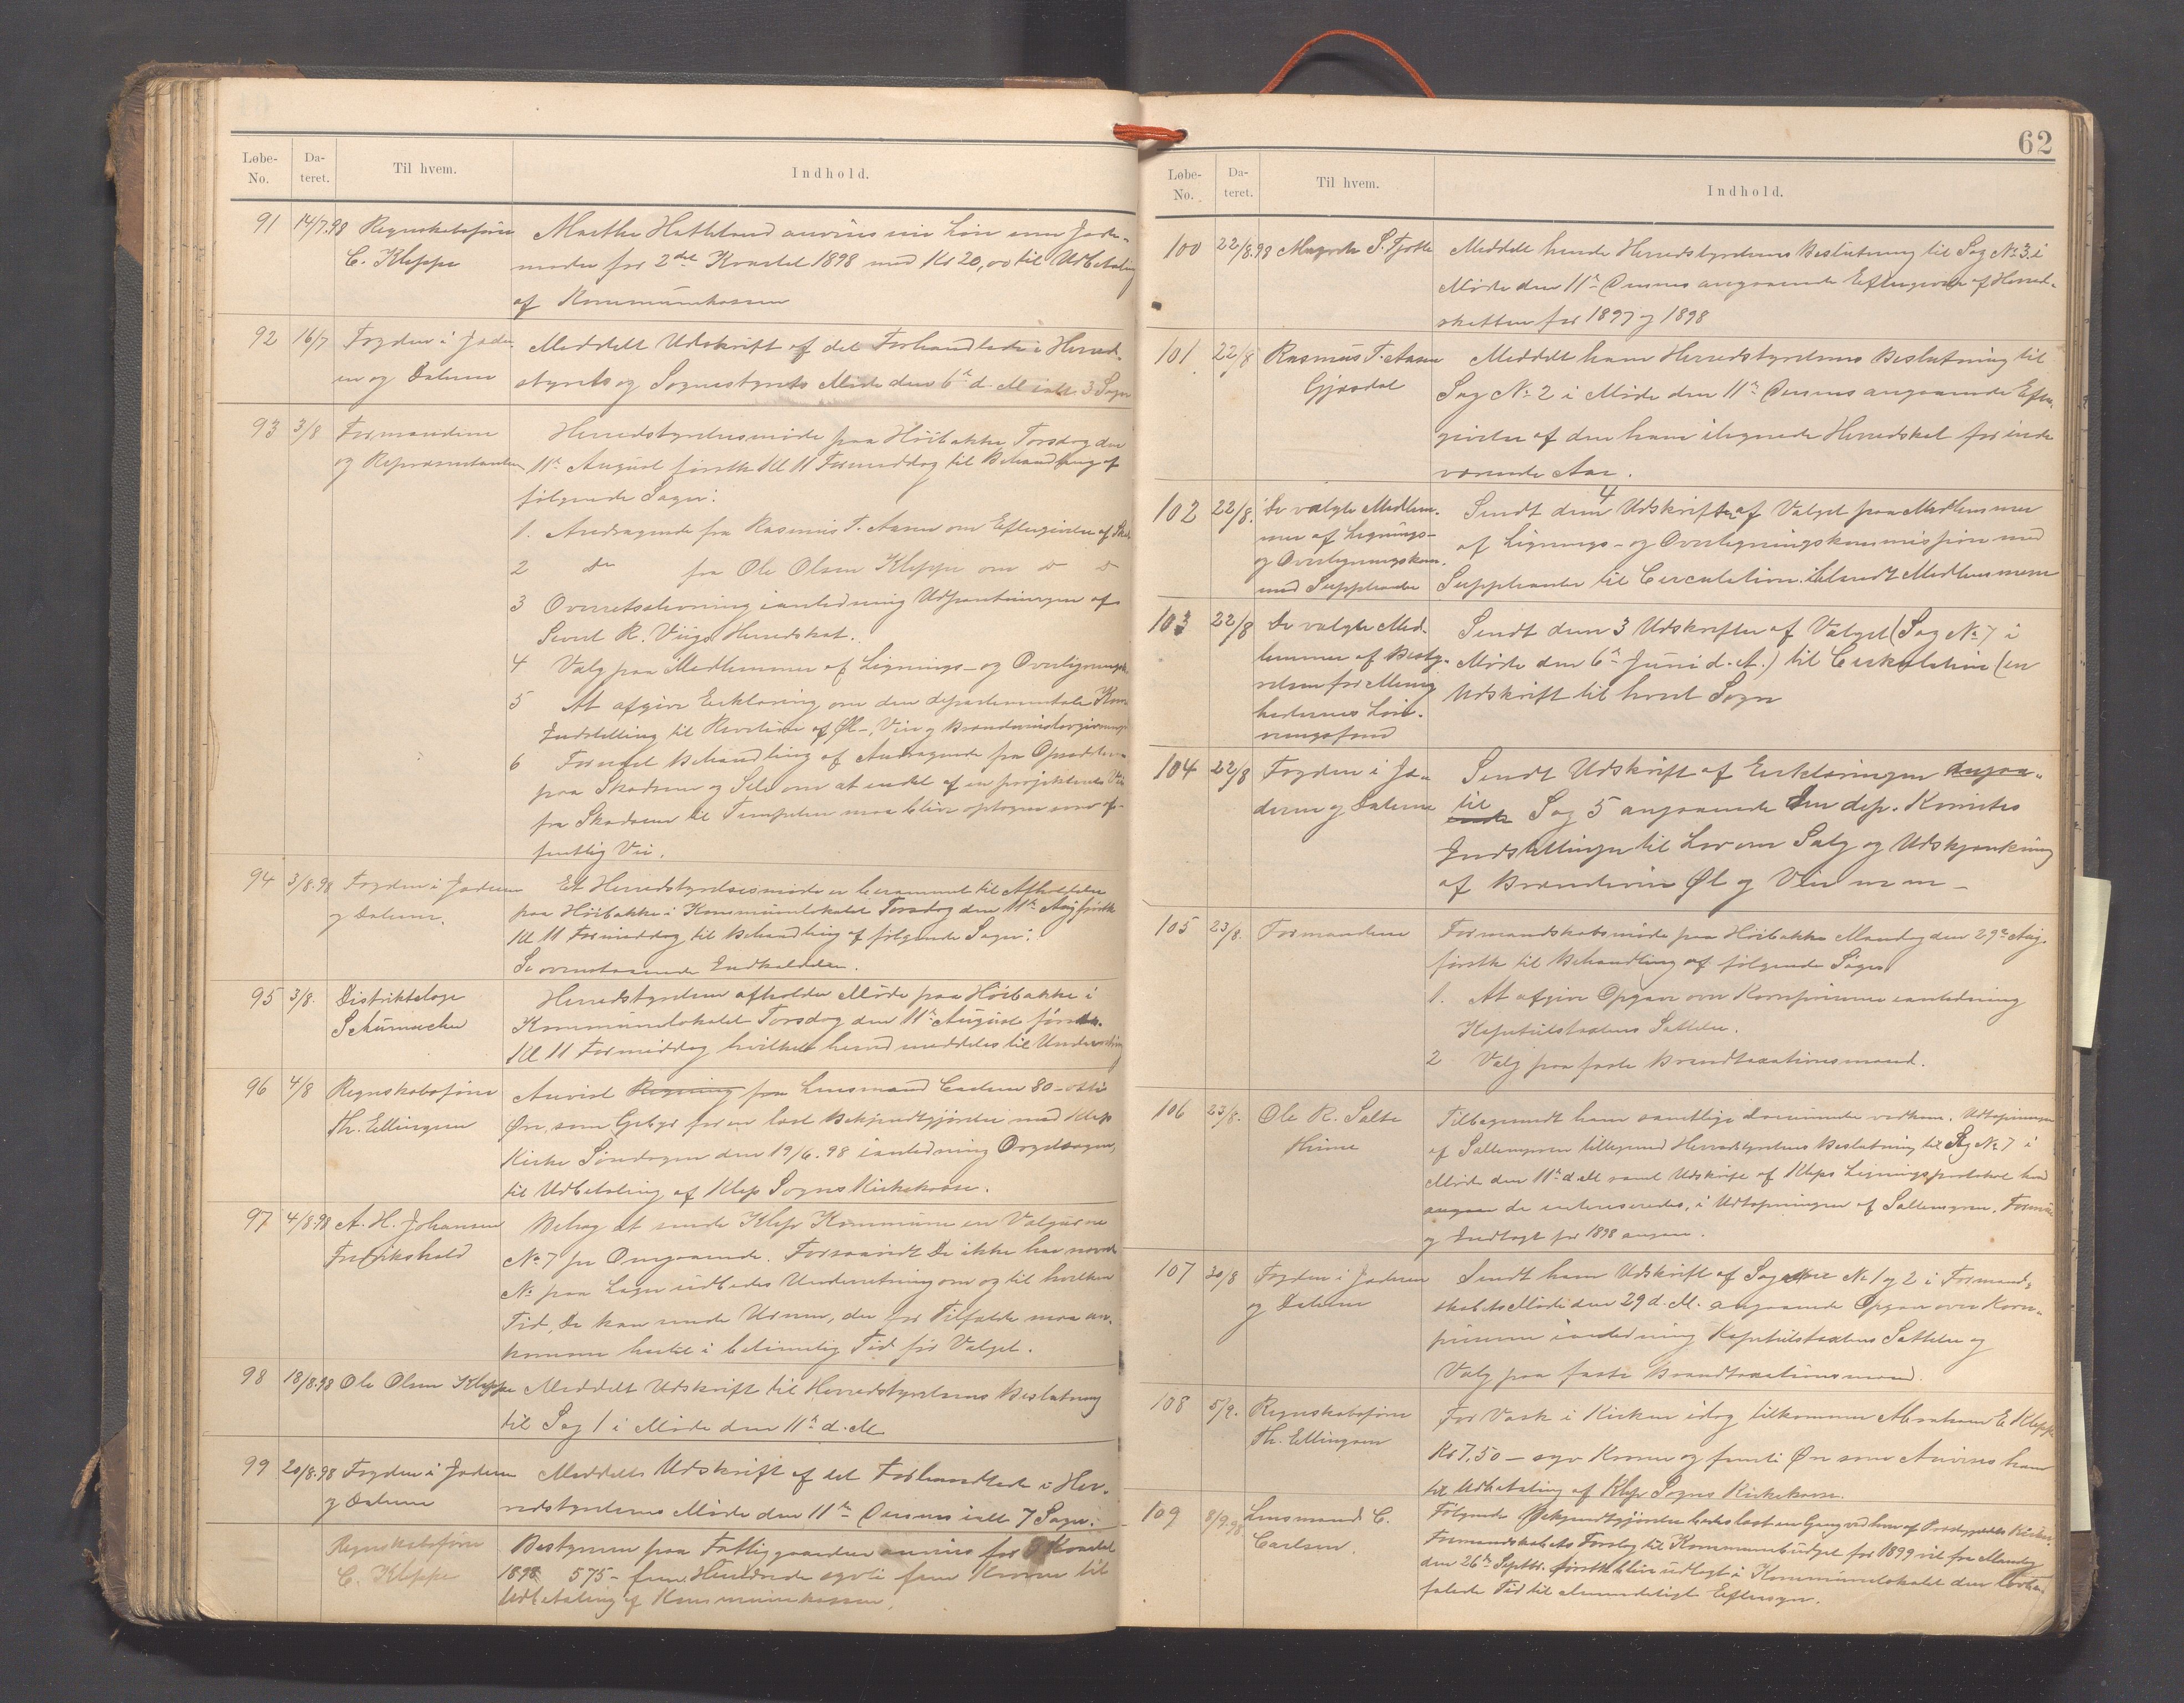 Løbe-No. Da-teret. Til hvem. Indhold.
91 14/7.98 Regnskabsfører C. Kleppe
Marthe Hatteland anvises sin Løn som Jorde-
moder for 2det Kvartal 1898 med Kr 20,00 til Udbetaling
af Kommunekassen
92 16/7 Fogden i Jæder-
en og Dalerne
Meddelt Udskrift af det Forhandlede i Herred-
styrets og Sognestyrets Møde den 6te d. M. ialt 3 Sager
93 3/8 Formændene
og Repræsentanter
Herredstyrelsesmøde paa Høibakke Torsdag den
11te August førstk Kl 11 Formiddag til Behandling af
følgende Sager:
1. Andragende fra Rasmus T. Aasen om Eftergivelse af Skat
2 do fra Ole Olsen Kleppe om do do
3 Overretsstevning ianledning Udpantningen af
Sivert R. Viigs Herredskat.
4 Valg paa Medlemmer af Lignings- og Overligningsk.
5 At afgive Erklæring om den departementale Kom
Indstilling til Revision af Øl-, Vin og Brændevinslovgivningen
6 Fornyet Behandling af Andragende fra Opsidderne
paa Skadsem og Sele om at endel af en projekteret Vei
fra Skadsem til Tempelen maa blive optagen som of-
fentlig Vei.
94 3/8.98 Fogden i Jæderen
og Dalerne.
Et Herredstyrelsesmøde er berammet til Afholdelse
paa Høibakke i Kommunelokalet Torsdag den 11te Aug førstk
Kl 11 Formiddag til Behandling af følgende Sager:
Se ovenstaaende Indkaldelse.
95 3/8. Distriktslæge
Schumacher
Herredstyrelsen afholder Møde paa Høibakke i
Kommunelokalet Torsdag den 11te August førstk.
Kl 11 Formiddag hvilket herved meddeles til Underretning
96 4/8 Regnskabsfører
Th. Ellingsen
Anvist Regning fra Lensmand Carlsen 80 - otti
Øre, som Gebyr for en læst Bekjendtgjørelse ved Klep
Kirke Søndagen den 19/6.98 ianledning Orgelsagen,
til Udbetaling af Klep Sogns Kirkekasse.
97 4/8.98 A. H. Johansen
Fredrikshald
Behag at sende Klep Kommune en Valgurne
No 7 pr Omgaaende. Forsaavidt De ikke har nævnte
No paa Lager udbedes Underretning om og til hvilken
Tid, De kan sende Urnen, der for Tilfælde maa an-
komme hertil i betimelig Tid før Valget.
98 18/8.98 Ole Olsen Kleppe
Meddelt Udskrift til Herredstyrelsens Beslutning
til Sag 1 i Møde den 11te d. M
99 20/8.98 Fogden i Jæderen
og Dalerne
Meddelt Udskrift af det Forhandlede i Her-
redstyrelsens Møde den 11te Dennes ialt 7 Sager.
Regnskabsfører
C. Kleppe
Bestyreren paa Fattiggaarden anvises for Kvartal
1898 575 - fem Hundrede sytti fem Kroner til
Udbetaling af Kommunekassen.
62
Løbe-No. Da-teret. Til hvem. Indhold.
100 22/8.98 S. Tjøtte
Meddelt hende Herredstyrelsens Beslutning til Sag No 3 i
Møde den 11te Dennes angaaende Eftergivelse af Herred-
skatten for 1897 og 1898
101 22/8 Rasmus T. Aasen
Gjæsdal
Meddelt ham Herredstyrelsens Beslutning til
Sag No 2 i Møde den 11te Dennes angaaende Efter-
givelse af den ham ilignede Herredskat for inde
værende Aar.
102 22/8. De valgte Medlem-
mer af Lignings-
og Overligningskom.
med Suppleanter
Sendt dem 4 Udskrifter af Valget paa Medlemmer
af Lignings- og Overligningskommission med
Suppleanter til Circulation iblandt Medlemmerne
103 22/8 De valgte Med-
lemmer af Besty-
relsen for Menig
hedernes Løn-
ningsfond
Sendt dem 3 Udskrifter af Valget (Sag No 7 i
Møde den 6te Juni d. A.) til Cirkulation (en
Udskrift til hvert Sogn
104 22/8 Fogden i Jæ-
deren og Dalerne
Sendt Udskrift af Erklæringen angaa-
ende til Sag 5 angaaende den dep. Komites
Indstillinger til Lov om Salg og Udskjænkning
af Brændevin Øl og Vin m m -
105 23/8. Formændene
Formandskabsmøde paa Høibakke Mandag den 29te Aug.
førstk til Behandling af følgende Sager
1. At afgive Opgave over Kornpriserne ianledning
Kapitelstaxtens Sættelse.
2 Valg paa faste Brandtaxationsmænd.
106 23/8. Ole R. Salte
Hinne
Tilbagesendt ham samtlige Dokumenter vedkom. Udtapningen
af tillegemed Herredstyrelsens Beslutning til Sag No 7 i
Møde den 11te d M samt Udskrift af Kleps Ligningsprotokol hvad
angaar de interesserede, i Udtapningen af Formue
og Indtægt for 1898 angaar.
107 30/8 Fogden i Jæderen
og Dalerne
Sendt ham Udskrift af Sagerne No 1 og 2 i Formand-
skabets Møde den 29 d. M. angaaende Opgave over Korn-
priserne ianledning Kapitelstaxtens Sættelse og
Valg paa faste Brandtaxationsmænd.
108 5/9. Regnskabsfører
Th. Ellingsen
For Vask i Kirken idag tilkommer Abraham E Kleppe
Kr 7,50 - syv Kroner og femti Øre som Anvises ham
til Udbetaling af Klep Sogns Kirkekasse.
109 8/9.98 Lensmand C.
Carlsen.
Følgende Bekjendtgjørelse bedes læst en Gang ved hver af Præstegjældets Kirker:
Formandskabets Forslag til Kommunebudget for 1899 vil fra Mandag
den 26te Septbr. førstk blive udlagt i Kommunelokalet den lovbe-
falede Tid til almindeligt Eftersyn.